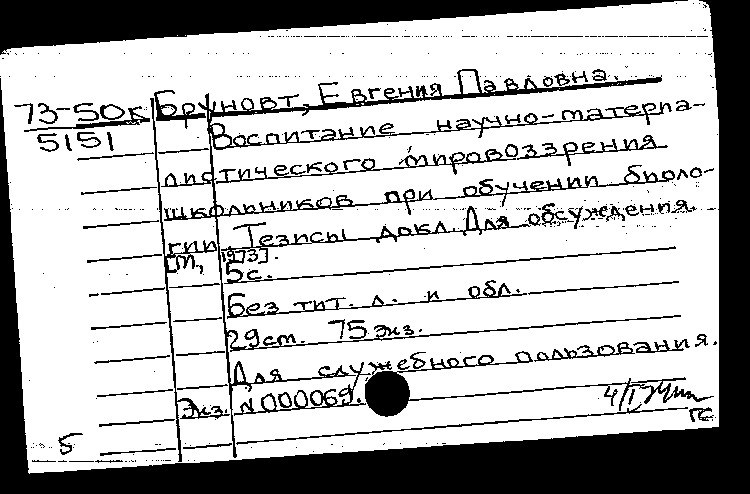 73-50к Бруновт, Евгения Павловна.
5151 Воспитание научно-материа-
листического мировоззрения
школьников при обучении биоло-
гии. Тезисы докл. Для обсуждения.
[М, 1973].
5с.
Без тит. л. и обл.
29см. 75 экз.
Для служебного пользования.
Экз. N 000069.
5 ГС